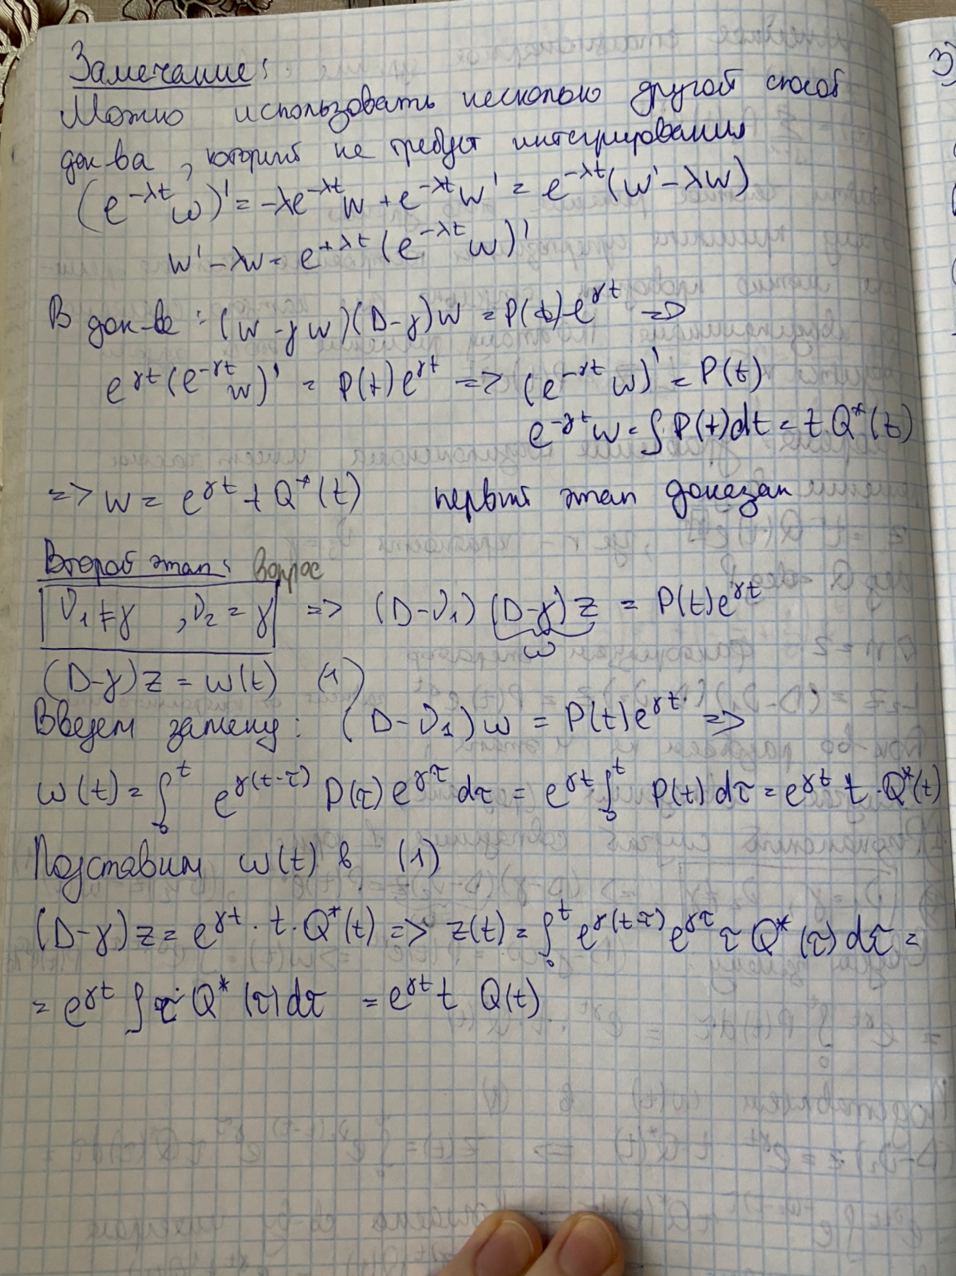 Замечание:
Можно использовать несколько другой способ
док-ва, который не требует интегрирования
(e^{-λt}w)' = -λe^{-λt}w + e^{-λt}w' = e^{-λt}(w' - λw)
w' - λw = e^{+λt}(e^{-λt}w)'
В док-ве: (w - γw)(D-γ)w = P(t)e^{γt} =>
e^{γt}(e^{-γt}w)' = P(t)e^{γt} => (e^{-γt}w)' = P(t)
e^{-γt}w = ∫P(t)dt = t·Q*(t)
=> w = e^{γt} t Q*(t) первый этап доказан
Второй этап: Вопрос
ν₁≠γ, ν₂=γ => (D-ν₁)(D-γ)z = P(t)e^{γt}
ω
(D-γ)z = w(t) (1)
Введем замену: (D-ν₁)w = P(t)e^{γt} =>
w(t) = ∫₀^t e^{γ(t-τ)} P(τ)e^{γτ}dτ = e^{γt} ∫₀^t P(t)dτ = e^{γt} t·Q*(t)
Подставим w(t) в (1)
(D-γ)z = e^{γt}·t·Q*(t) => z(t) = ∫₀^t e^{γ(t-τ)} e^{γτ} τ Q*(τ)dτ =
= e^{γt} ∫ τ·Q*(τ)dτ = e^{γt} t Q(t)
3)